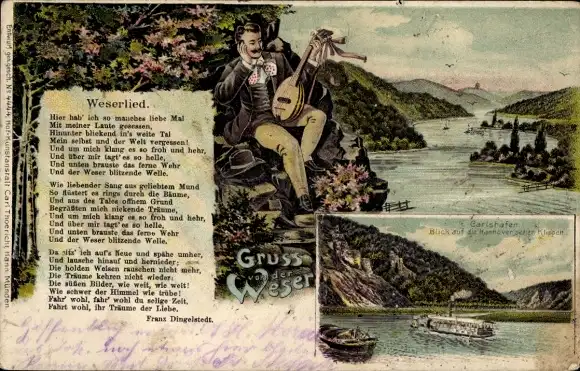 Entwurf gesetzl. gesch. Nr. 4444, Hof-Kunstanstalt Carl Thoericht, Hann. Münden.
Weserlied.
Hier hab' ich so manches liebe Mal
Mit meiner Laute gesessen,
Hinunter blickend in's weite Tal
Mein selbst und der Welt vergessen!
Und um mich klang es so froh und hehr,
Und über mir tagt' es so helle,
Und unten brauste das ferne Wehr
Und der Weser blitzende Welle.
Wie liebender Sang aus geliebtem Mund
So flüstert es rings durch die Bäume,
Und aus des Tales offnem Grund
Begrüßten mich nickende Träume,
Und um mich klang es so froh und hehr,
Und über mir tagt' es so helle,
Und unten brauste das ferne Wehr
Und der Weser blitzende Welle.
Da sitz' ich auf's Neue und spähe umher,
Und lausche hinauf und hernieder;
Die holden Weisen rauschen nicht mehr,
Die Träume kehren nicht wieder.
Die süßen Bilder, wie weit, wie weit!
Wie schwer der Himmel wie trübe!
Fahr' wohl, fahr' wohl du selige Zeit,
Fahrt wohl, ihr Träume der Liebe,
Franz Dingelstedt.
Gruss
von der
Weser
Carlshafen
Blick auf die Hannöverschen Klippen